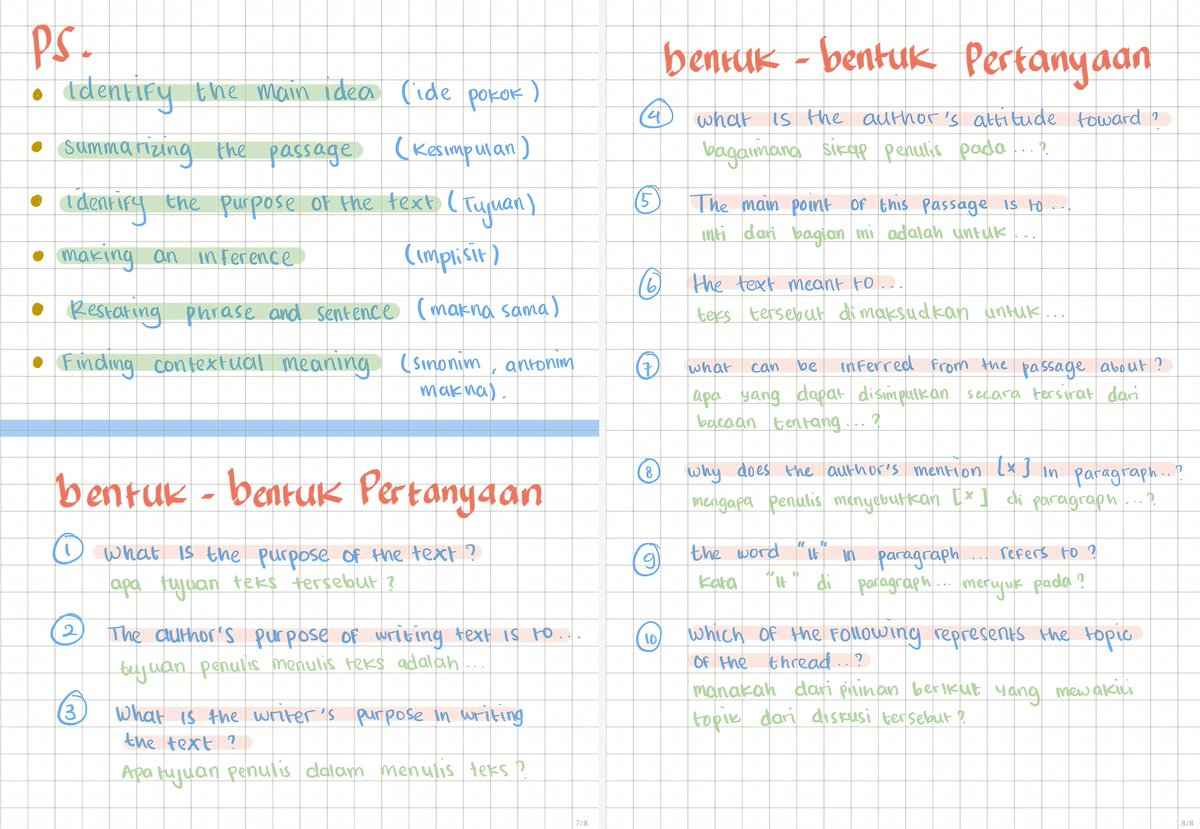 PS.
• Identify the main idea (ide pokok)
• summarizing the passage (kesimpulan)
• identify the purpose of the text (Tujuan)
• making an inference (implisit)
• Restating phrase and sentence (makna sama)
• Finding contextual meaning (sinonim, antonim
makna).
bentuk - bentuk Pertanyaan
1 What is the purpose of the text?
apa tujuan teks tersebut?
2 The author's purpose of writing text is to...
tujuan penulis menulis teks adalah...
3 What is the writer's purpose in writing
the text?
Apa tujuan penulis dalam menulis teks?
7/8
bentuk - bentuk Pertanyaan
4 what is the author's attitude toward?
bagaimana sikap penulis pada...?
5 The main point of this passage is to...
inti dari bagian ini adalah untuk...
6 the text meant to...
teks tersebut dimaksudkan untuk...
7 what can be inferred from the passage about?
apa yang dapat disimpulkan secara tersirat dari
bacaan tentang...?
8 why does the author's mention [x] in paragraph..?
mengapa penulis menyebutkan [x] di paragraph...?
9 the word "it" in paragraph... refers to?
kata "it" di paragraph... merujuk pada?
10 which of the following represents the topic
of the thread..?
manakah dari pilihan berikut yang mewakili
topik dari diskusi tersebut?
8/8